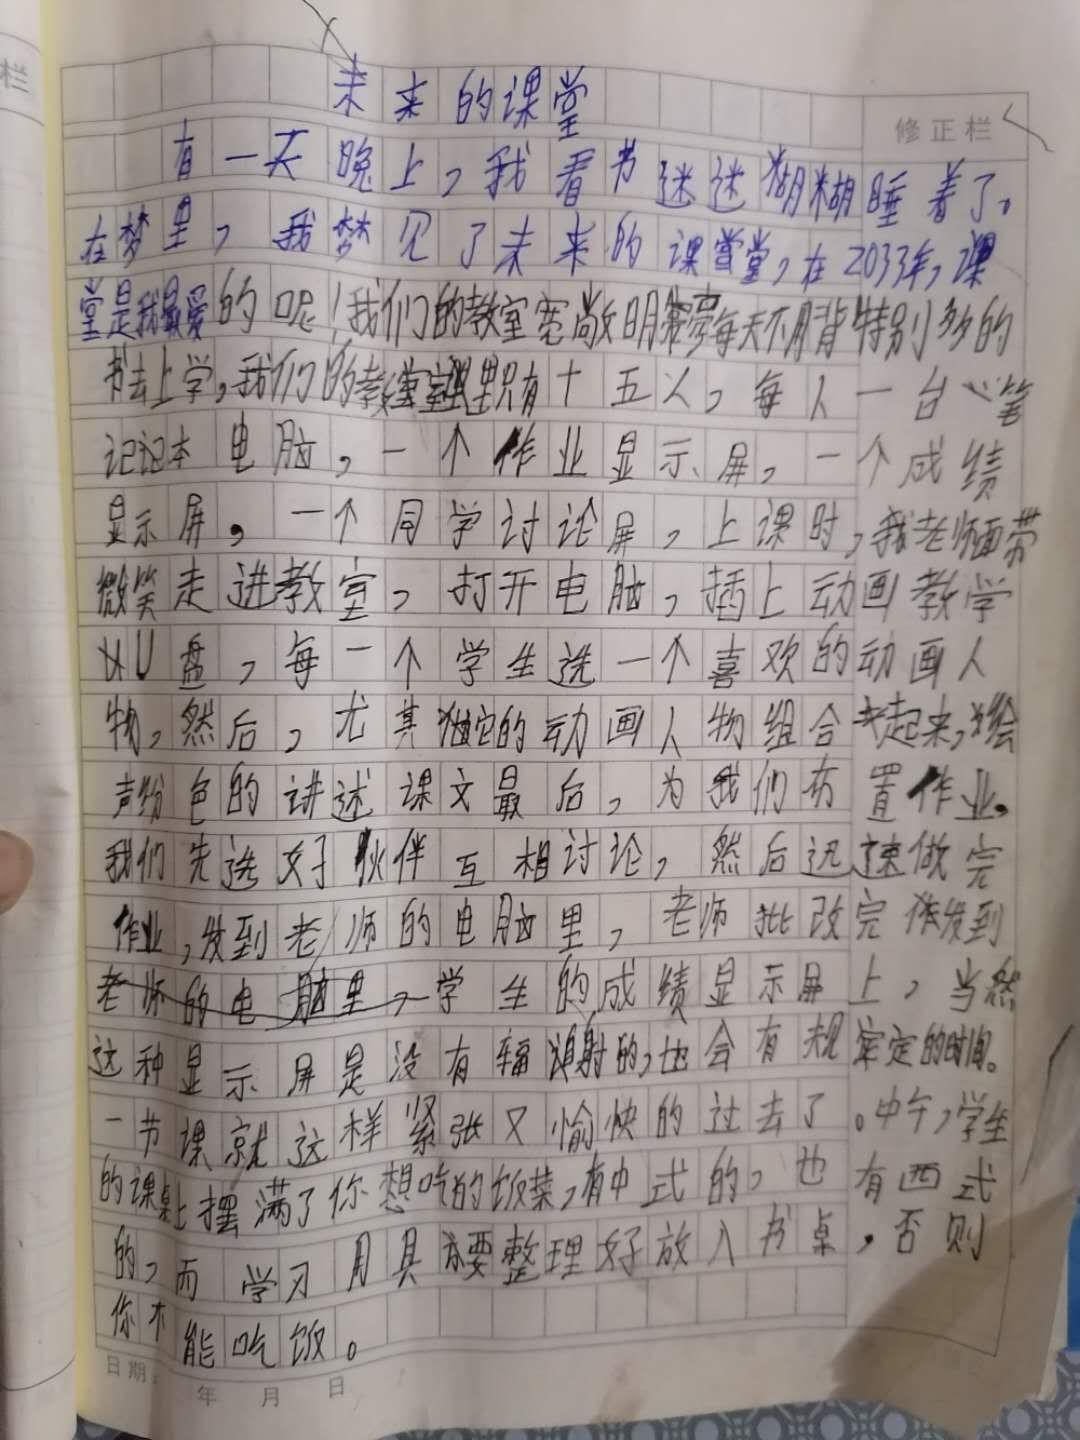 未来的课堂
修正栏
有一天晚上，我看书迷迷糊糊睡着了。
在梦里，我梦见了未来的课堂，在2033年，课
堂是我最爱的呢！我们的教室宽敞明亮每天不用背特别多的
书去上学，我们的教室里只有十五人，每人一台笔
记记本电脑，一个作业显示屏，一个成绩
显示屏，一个同学讨论屏，上课时，我老师面带
微笑走进教室，打开电脑，插上动画教学
U盘，每一个学生选一个喜欢的动画人
物，然后，尤其他的动画人物组合起来，绘
声纷色的讲述课文最后，为我们布置作业。
我们先选好伙伴互相讨论，然后迅速做完
作业，发到老师的电脑里，老师批改完作发到
老师的电脑里，学生的成绩显示屏上，当然
这种显示屏是没有辐射的，也会有规定的时间。
一节课就这样紧张又愉快的过去了。中午，学生
的课桌上摆满了你想吃的饭菜，有中式的，也有西式
的，而学习用具要整理好放入书桌，否则
你不能吃饭。
日期： 年 月 日
栏